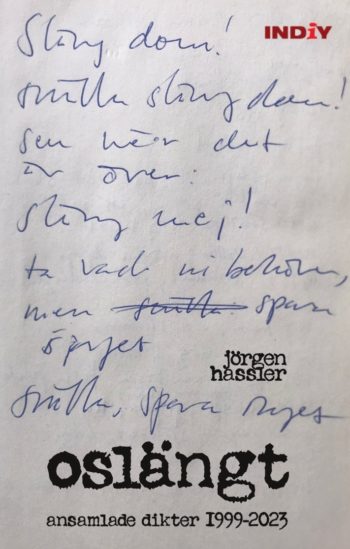 INDiY
Släng dom!
snälla släng dom!
sen när det
är över:
släng mej!
ta vad ni behöver,
men snälla spara
snälla, spara
jörgen
hassler
oslängt
ansamlade dikter 1999-2023